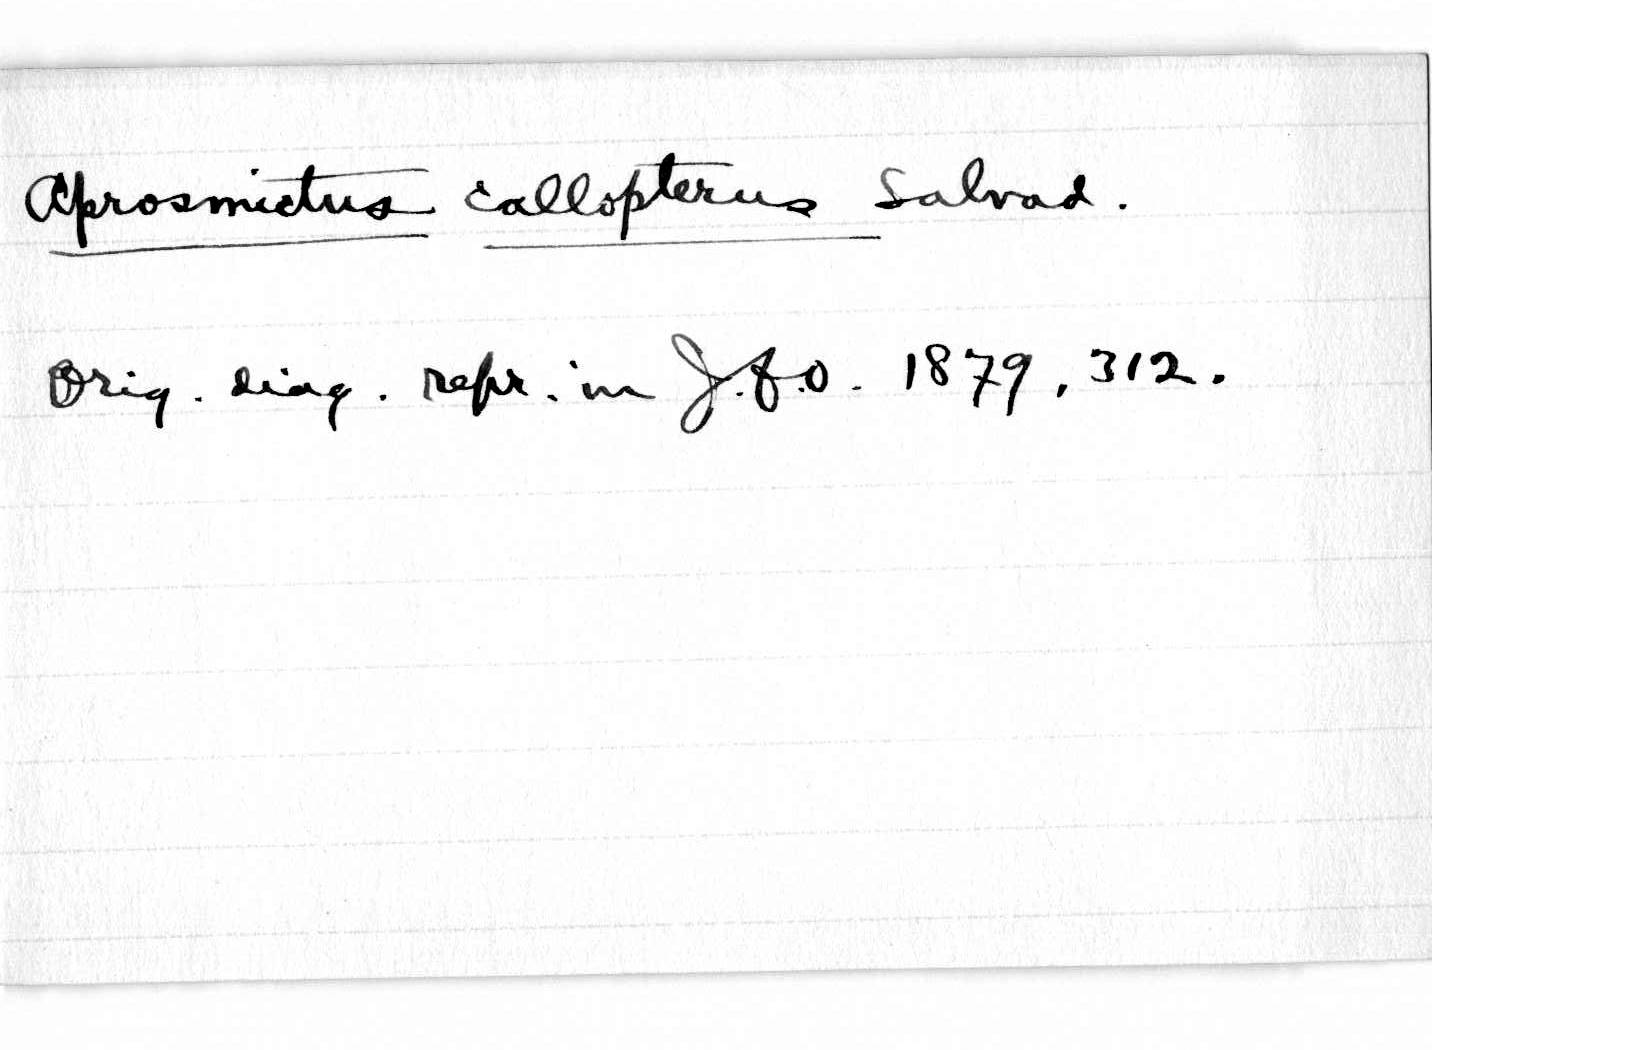 Aprosmictus callopterus Salvad.
Orig. diag. repr. in J.f.O. 1879, 312.